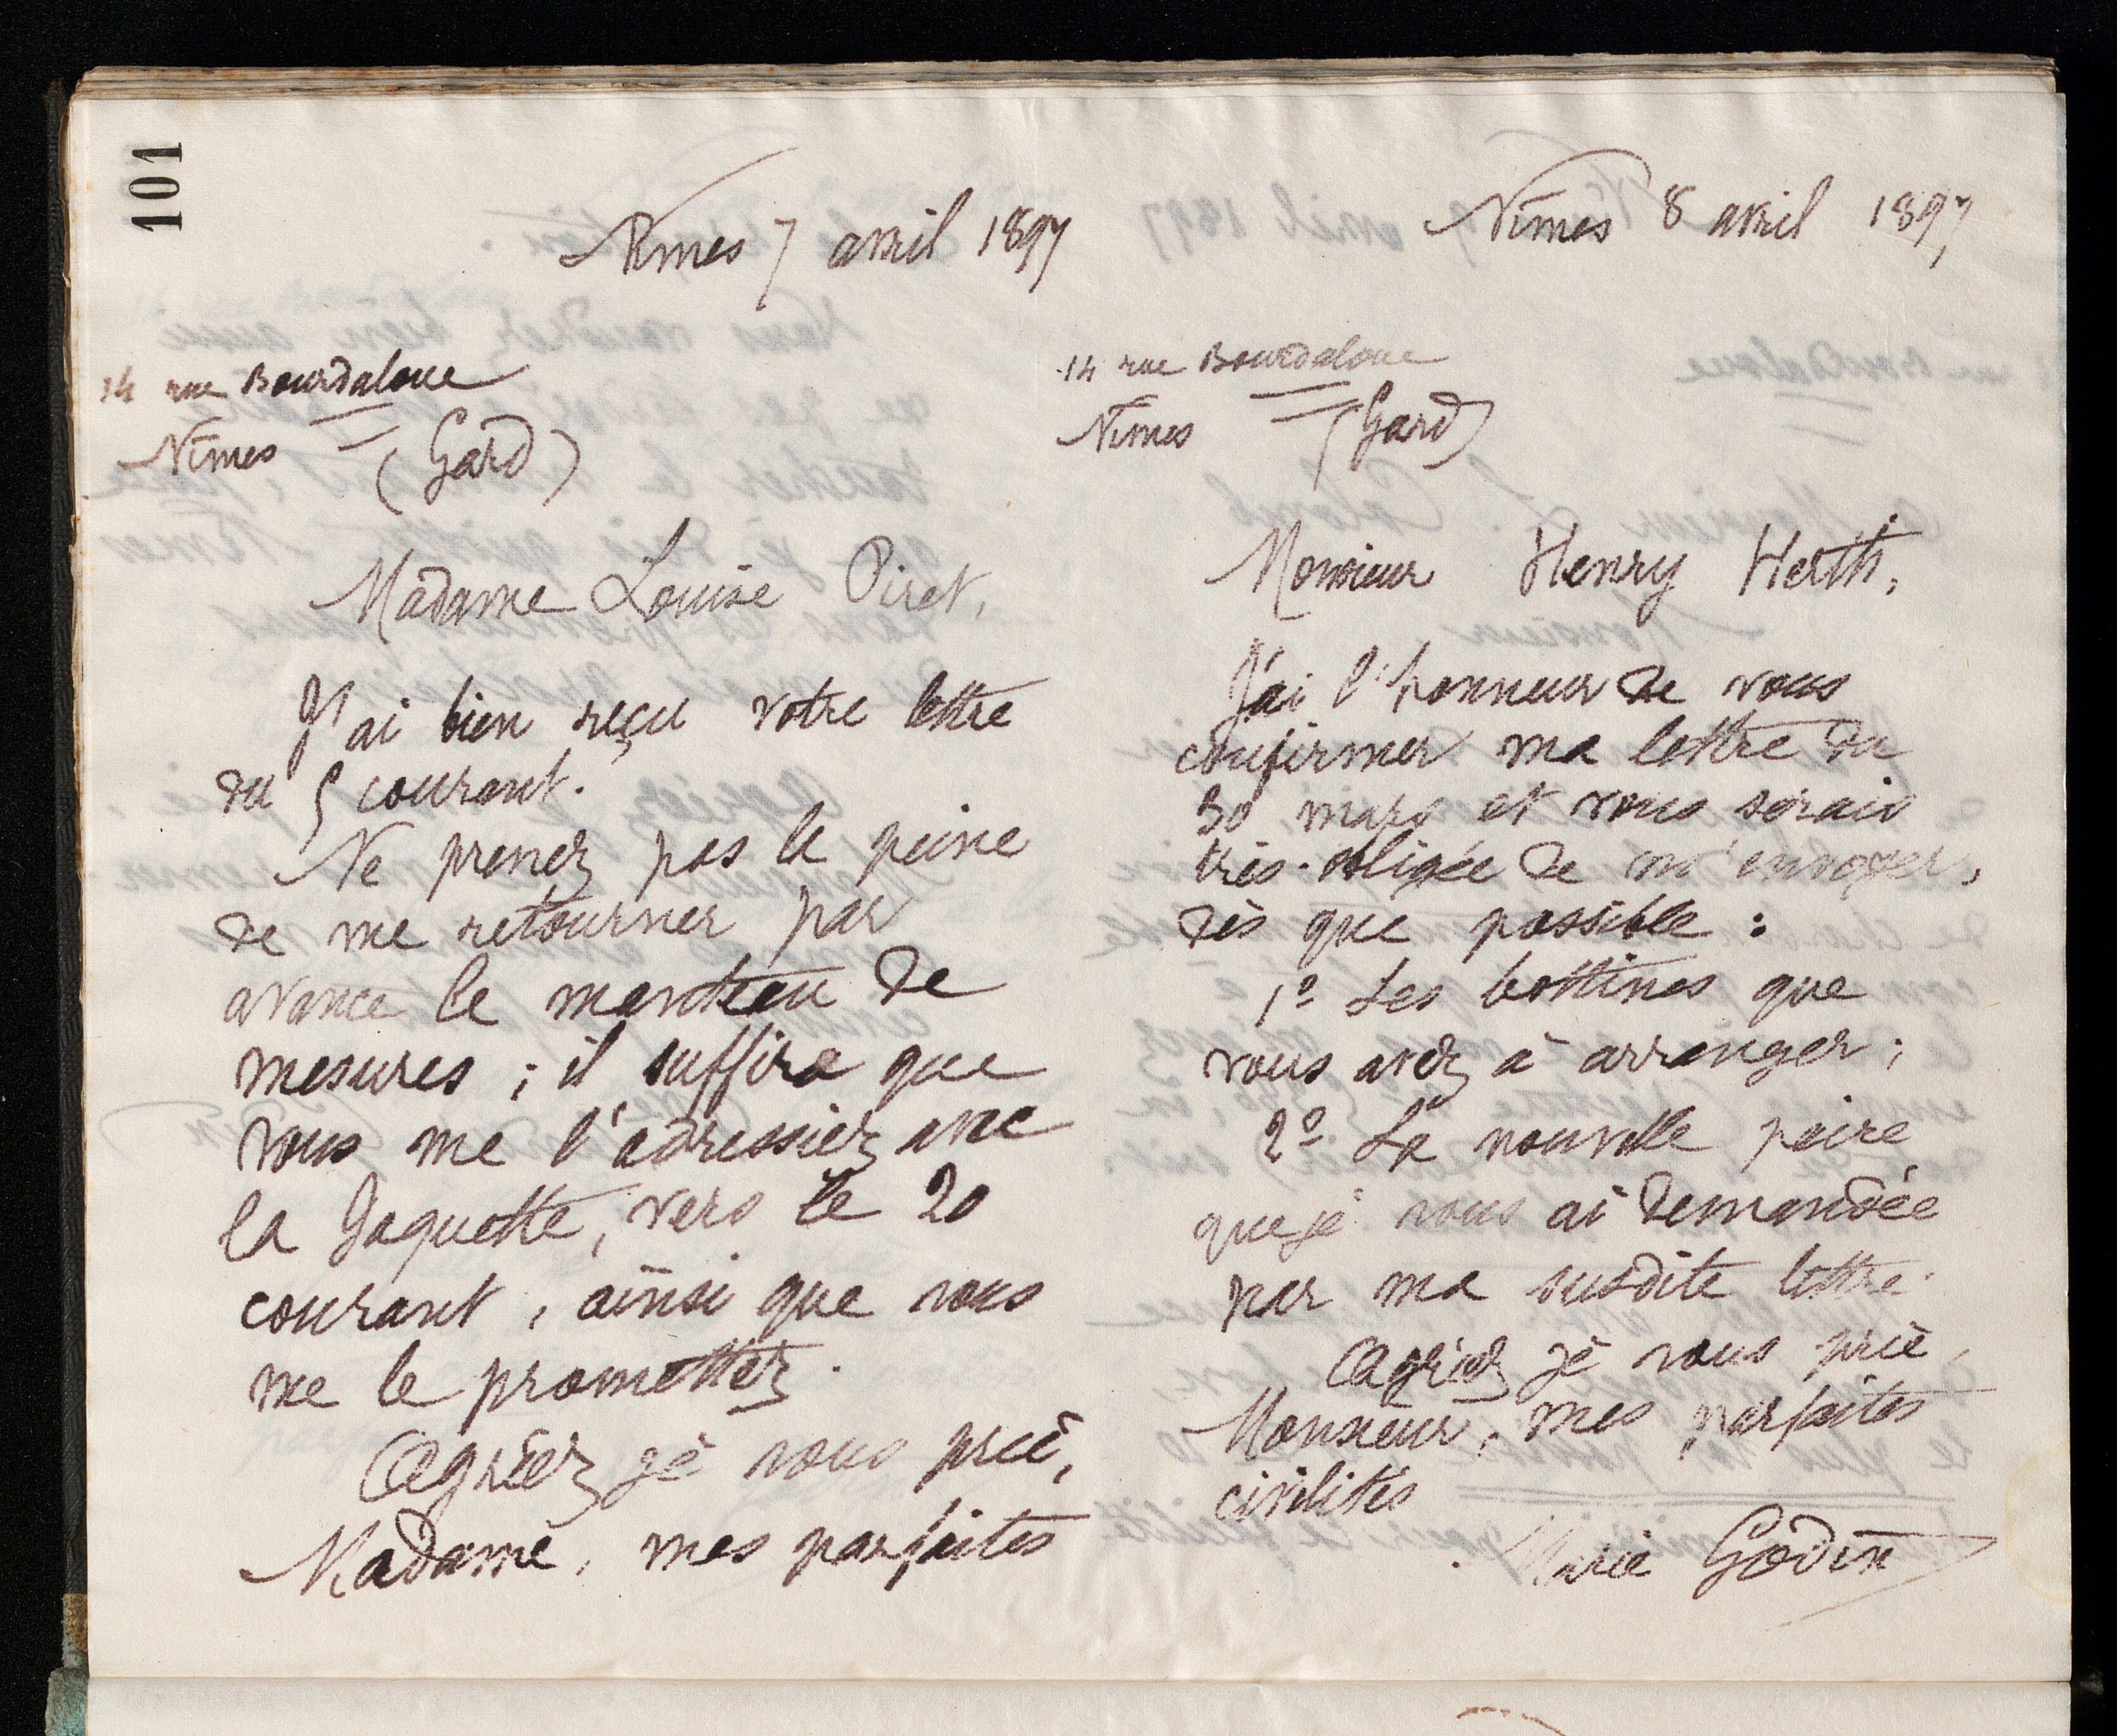 101
Nîmes 7 avril 1897
14 rue Bourdaloue
Nîmes (Gard)
Madame Louise Piret,
J'ai bien reçu votre lettre
du 5 courant.
Ne prenez pas la peine
de me retourner par
avance le manteau de
mesures ; il suffira que
vous me l'adressiez avec
la Jaquette, vers le 20
courant, ainsi que vous
me le promettez.
Agréez je vous prie,
Madame, mes parfaites
Nîmes 8 avril 1897
14 rue Bourdaloue
Nîmes (Gard)
Monsieur Henry Herth,
J'ai l'honneur de vous
confirmer ma lettre du
30 mars et vous serais
très-obligée de m'envoyer,
dès que possible :
1º Les bottines que
vous avez à arranger ;
2º La nouvelle paire
que je vous ai demandée
par ma susdite lettre.
Agréez je vous prie,
Monsieur, mes parfaites
civilités
Marie Godin